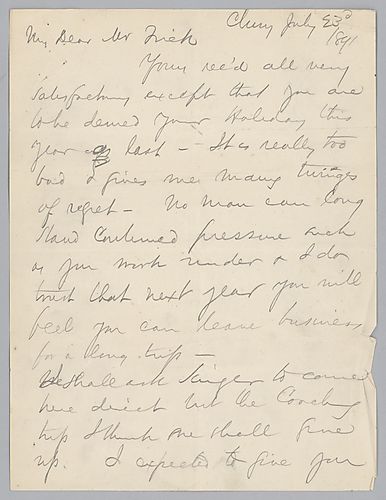 Cluny July 23d
1891
My Dear Mr Frick
Yours rec'd all very
satisfactory except that you are
to be denied your Holiday this
year as last — It is really too
bad & gives me many twinges
of regret — No man can long
stand continued pressure such
as you work under & I do
trust that next year you will
feel you can leave business
for a long trip —
We shall ask Singer to come
here direct but the Coaching
trip I think we shall give
up. I expected to give you